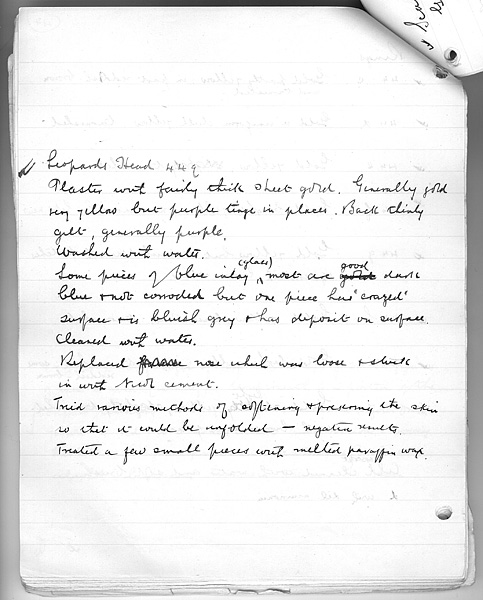 Leopards Head 449
Plaster with fairly thick sheet gold. Generally gold
very yellow but purple tinge in places. Back thinly
gilt, generally purple.
Washed with water.
Some pieces of blue inlay (glass), most are good dark
blue & not corroded but one piece has "crazed"
surface & is bluish grey & has deposit on surface.
Cleaned with water.
Replaced nose which was loose & stuck
in with cement.
Tried various methods of softening & preserving the skin
so that it could be unfolded — negative results.
Treated a few small pieces with melted paraffin wax.